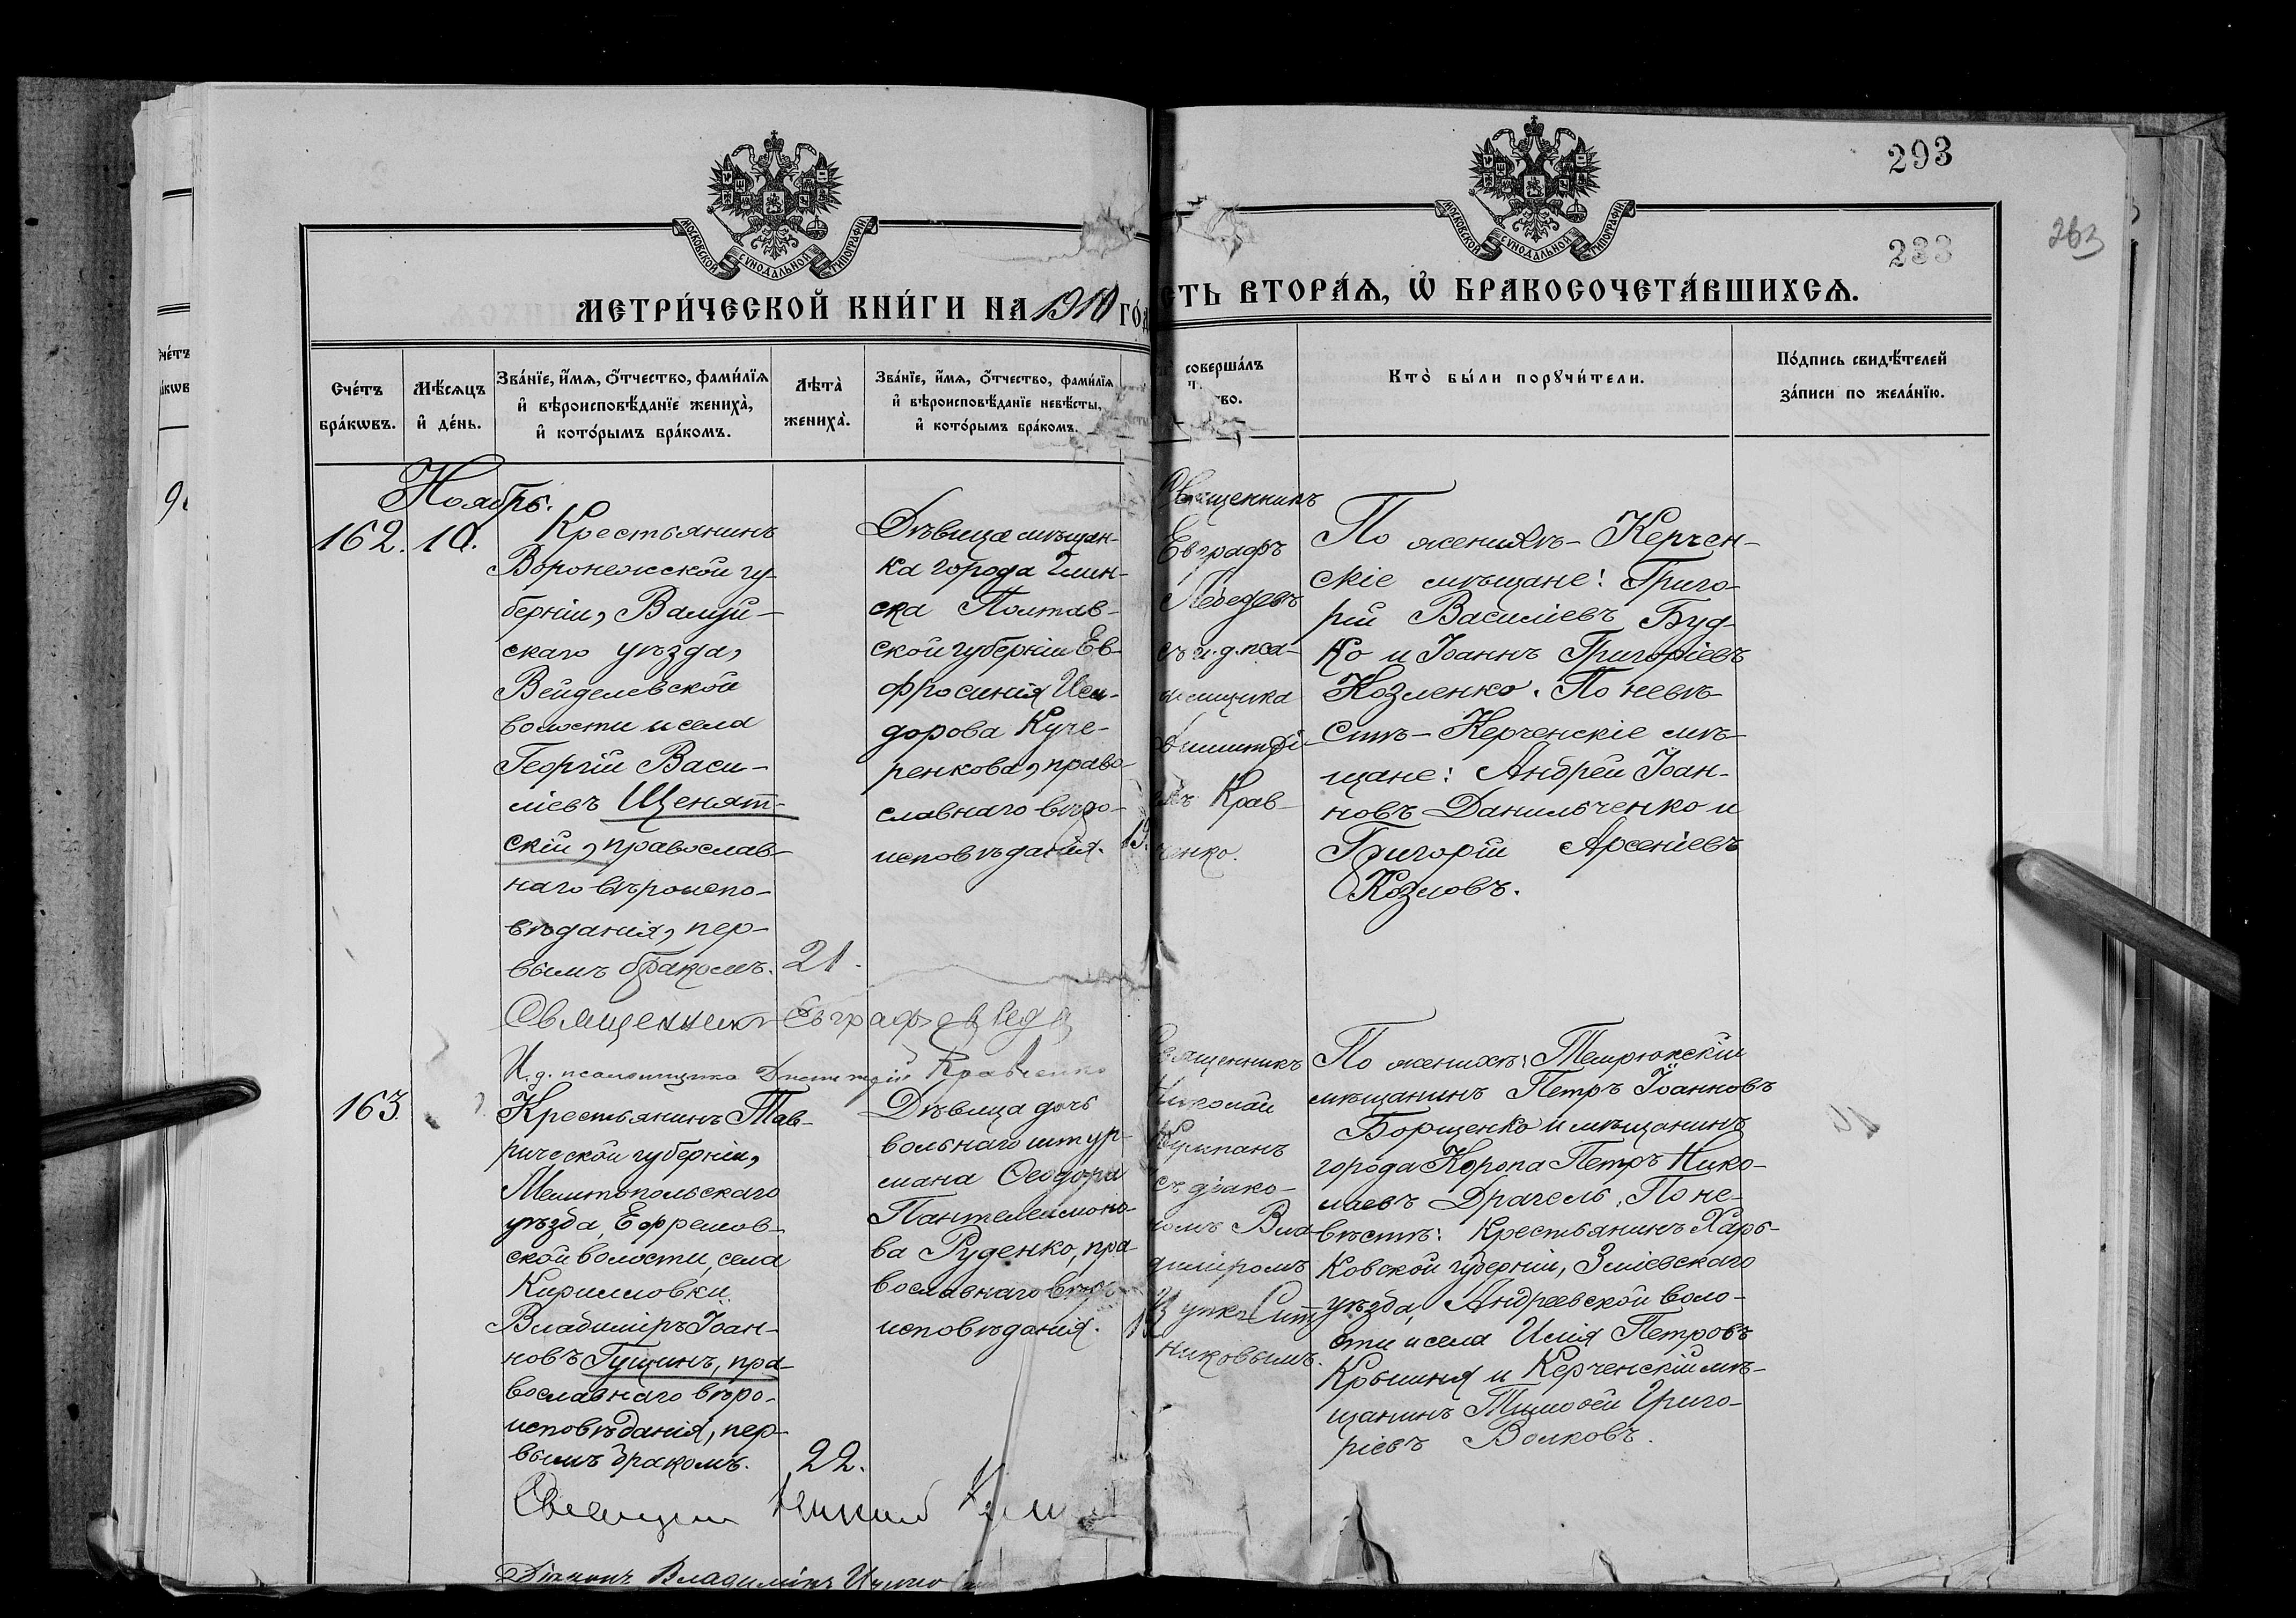 293
263
233
МОСКОВСКОЙ СѴНОДАЛЬНОЙ ТИПОГРАФІИ
МОСКОВСКОЙ СѴНОДАЛЬНОЙ ТИПОГРАФІИ
МЕТРИ́ЧЕСКОЙ КНИ́ГИ НА 1910 ГО́Д
СТЬ ВТОРА́Ѧ, Ѡ҆ БРАКОСОЧЕТА́ВШИХСѦ.
Сче́тъ
бра́кѡвъ.
Мѣ́сѧцъ
и҆ де́нь.
Зва́нїе, и҆́мѧ, ѻ҆́тчество, фами́лїѧ
и҆ вѣроисповѣ́данїе жениха̀,
и҆ кото́рымъ бра́комъ.
Лѣта̀
жениха̀.
Зва́нїе, и҆́мѧ, ѻ҆́тчество, фами́лїѧ
и҆ вѣроисповѣ́данїе невѣ́сты,
и҆ кото́рымъ бра́комъ.
соверша́лъ
Кто̀ бы́ли порꙋчи́тели.
По́дпись свидѣ́телей
за́писи по жела́нїю.
Ноябрь.
162.
10.
Крестьянинъ
Воронежской гу-
берніи, Валуй-
скаго уѣзда,
Вейделевской
волости и села
Георгій Васи-
ліевъ Щенят-
скій, православ-
наго вѣроиспо-
вѣданія, пер-
вымъ бракомъ.
21.
Дѣвица мѣщан-
ка города Глин-
ска Полтав-
ской губерніи Ев-
фросинія Иси-
дорова Куче-
ренкова, право-
славнаго вѣро-
исповѣданія.
19.
Священникъ
Евграфъ
Лебедевъ
съ и.д. пса-
ломщика
Димитрі-
емъ Крав-
ченко.
По женихѣ - Керчен-
скіе мѣщане: Григо-
рій Василіевъ Буд-
ко и Іоаннъ Григоріевъ
Козленко. По невѣ-
стѣ - Керченскіе мѣ-
щане: Андрей Іоан-
новъ Данильченко и
Григорій Арсеніевъ
Козловъ.
Священникъ Евграфъ
И. д. псаломщика Димитрій Кравченко
163.
Крестьянинъ Тав-
рической губерніи,
Мелитопольскаго
уѣзда, Ефремов-
ской волости, села
Кирилловки
Владиміръ Іоан-
новъ Гущинъ, пра-
вославнаго вѣро-
исповѣданія, пер-
вымъ бракомъ.
22.
Дѣвица дочь
вольнаго штур-
мана Ѳеодора
Пантелеимоно-
ва Руденко, пра-
вославнаго вѣро-
исповѣданія.
Священникъ
Николай
съ діако-
номъ Вла-
диміромъ
никовымъ.
По женихѣ: Темрюкскій
мѣщанинъ Петръ Іоанновъ
Борщенко и мѣщанинъ
города Коропа Петръ Нико-
лаевъ Драгель. По не-
вѣстѣ: Крестьянинъ Харь-
ковской губерніи, Зміевскаго
уѣзда, Андреевской воло-
сти и села Илія Петровъ
Крышня и Керченскій мѣ-
щанинъ Тимоѳей Григо-
ріевъ Волковъ.
Діаконъ Владиміръ